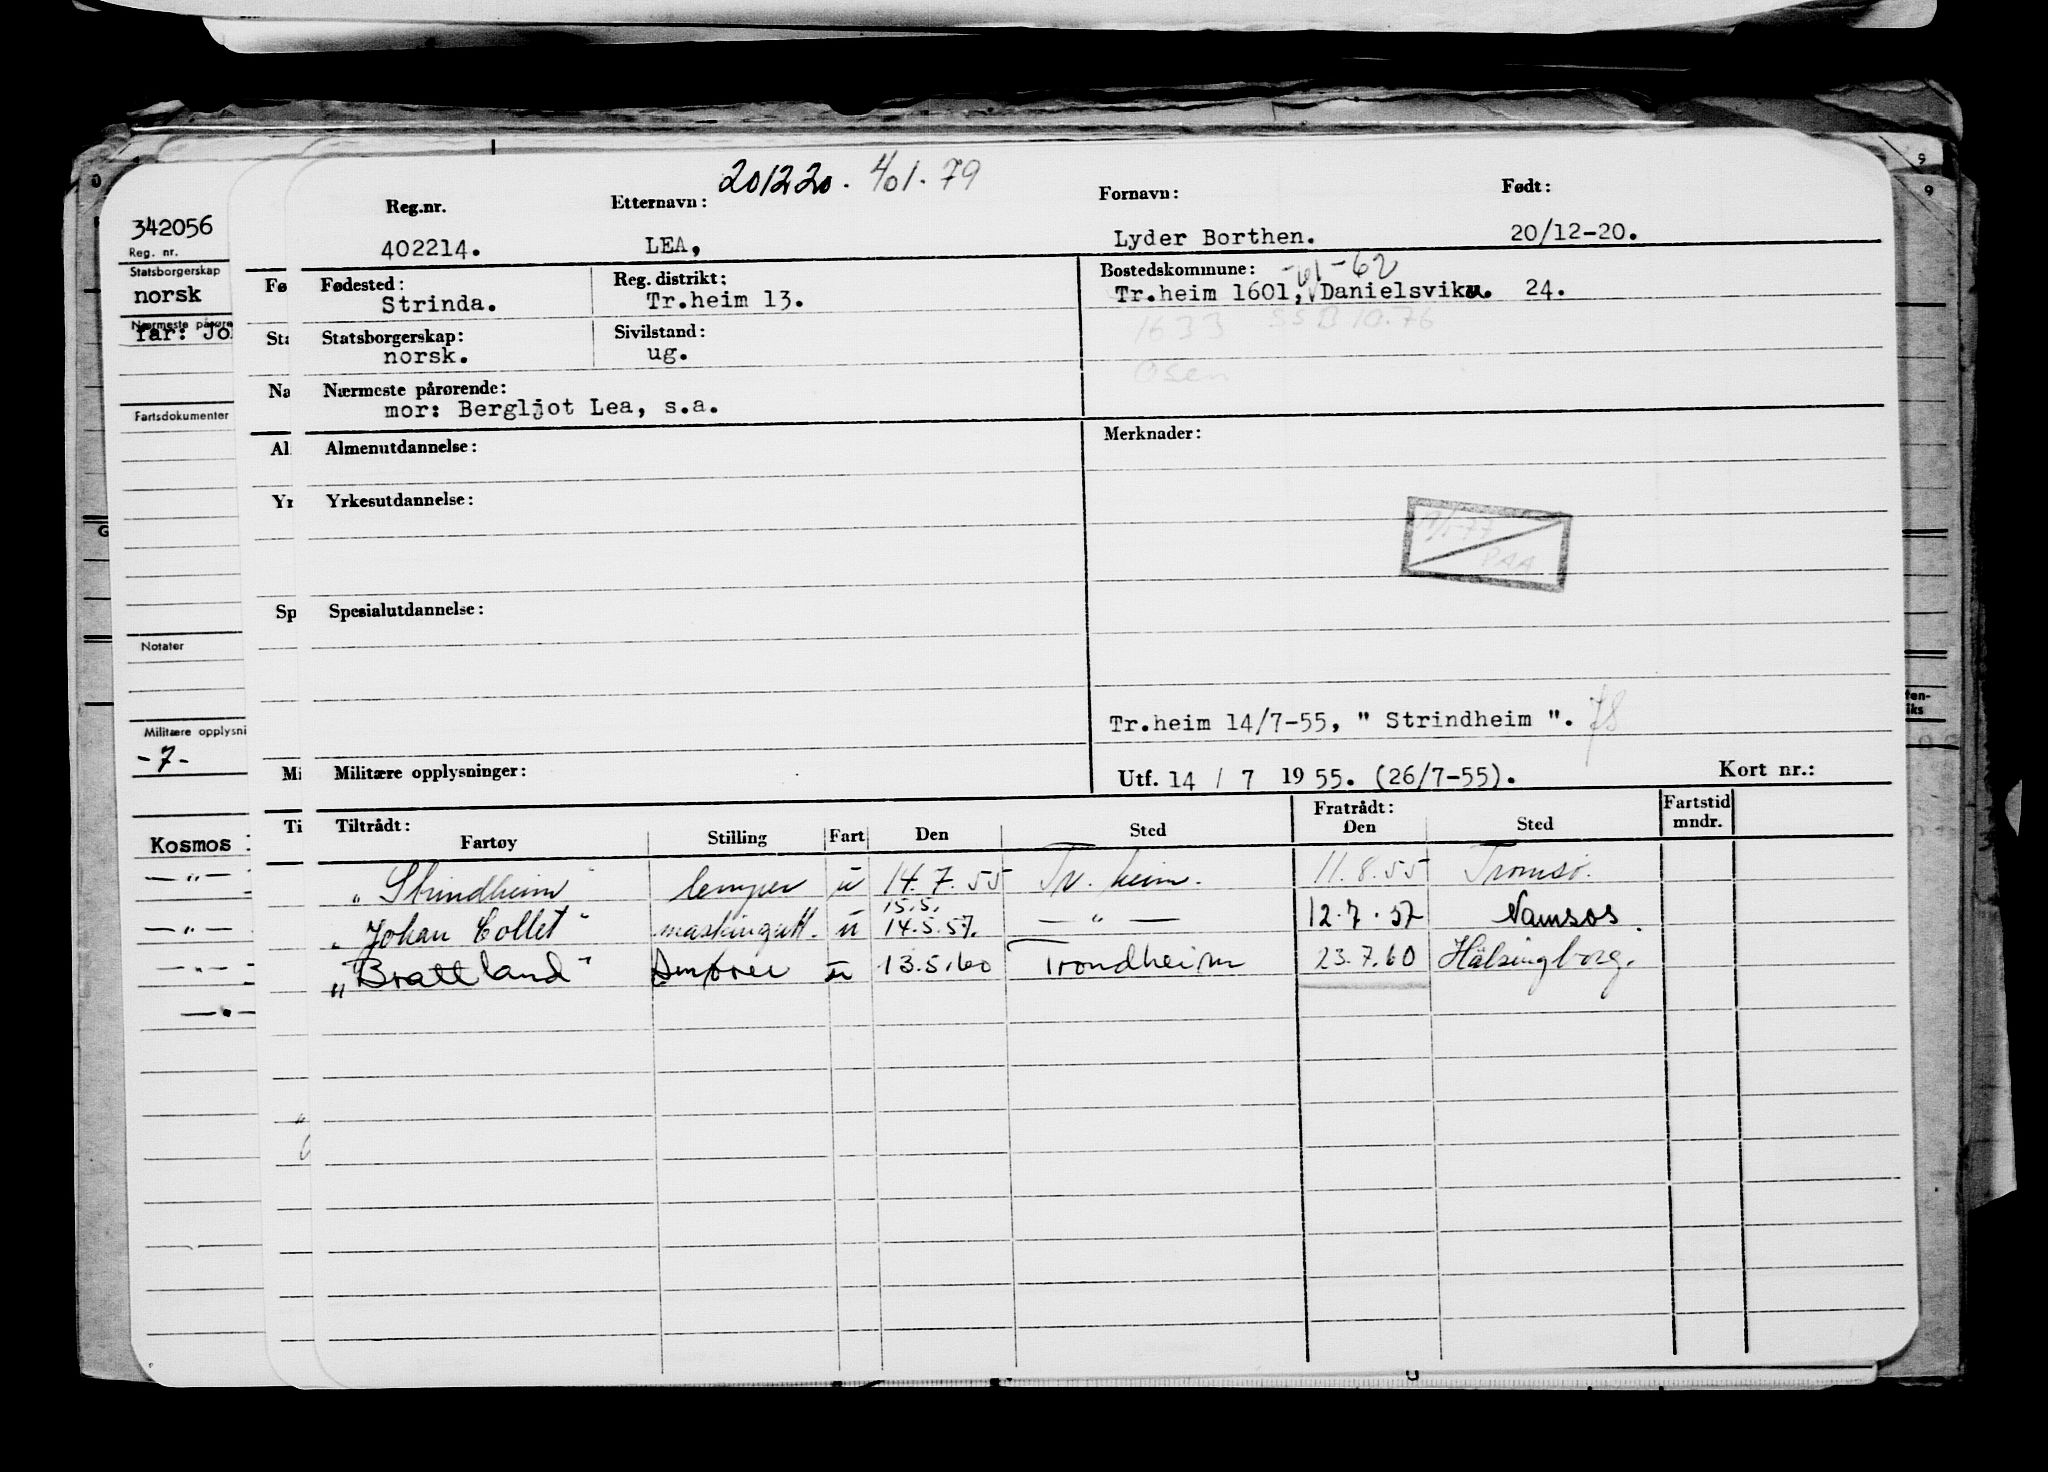 201220. 401.79
Reg.nr. Etternavn: Fornavn: Født:
402214. LEA, Lyder Borthen. 20/12-20.
Fødested: Reg. distrikt: Bostedskommune: -61-62
Strinda. Tr.heim 13. Tr.heim 1601, Danielsviku. 24.
1633 SSB 10.76
Osen
Statsborgerskap: Sivilstand:
norsk. ug.
Nærmeste pårørende:
mor: Bergljot Lea, s.a.
Almenutdannelse: Merknader:
Yrkesutdannelse:
PAA
Spesialutdannelse:
Tr.heim 14/7-55, " Strindheim ".
Militære opplysninger: Utf. 14 / 7 19 55. (26/7-55). Kort nr.:
Tiltrådt: Fratrådt: Fartstid
Fartøy Stilling Fart Den Sted Den Sted mndr.
"Strindheim" lemper u 14.7.55 Tr. heim. 11.8.55 Tromsø.
15.5.
"Johan Collet" maskingutt. u 14.5.57. — " — 12.7.57 Namsos.
"Brattland" u 13.5.60 Trondheim 23.7.60 Hälsingborg.
342056
Reg. nr.
Statsborgerskap
norsk
Nærmeste pårøre
far: Jo
Fartsdokumenter
Notater
Militære opplysni
-7-
Kosmos
— " —
— " —
— " —
— " —
Fø
Sta
Na
Al
Yr
Sp
Mi
Ti
9
9